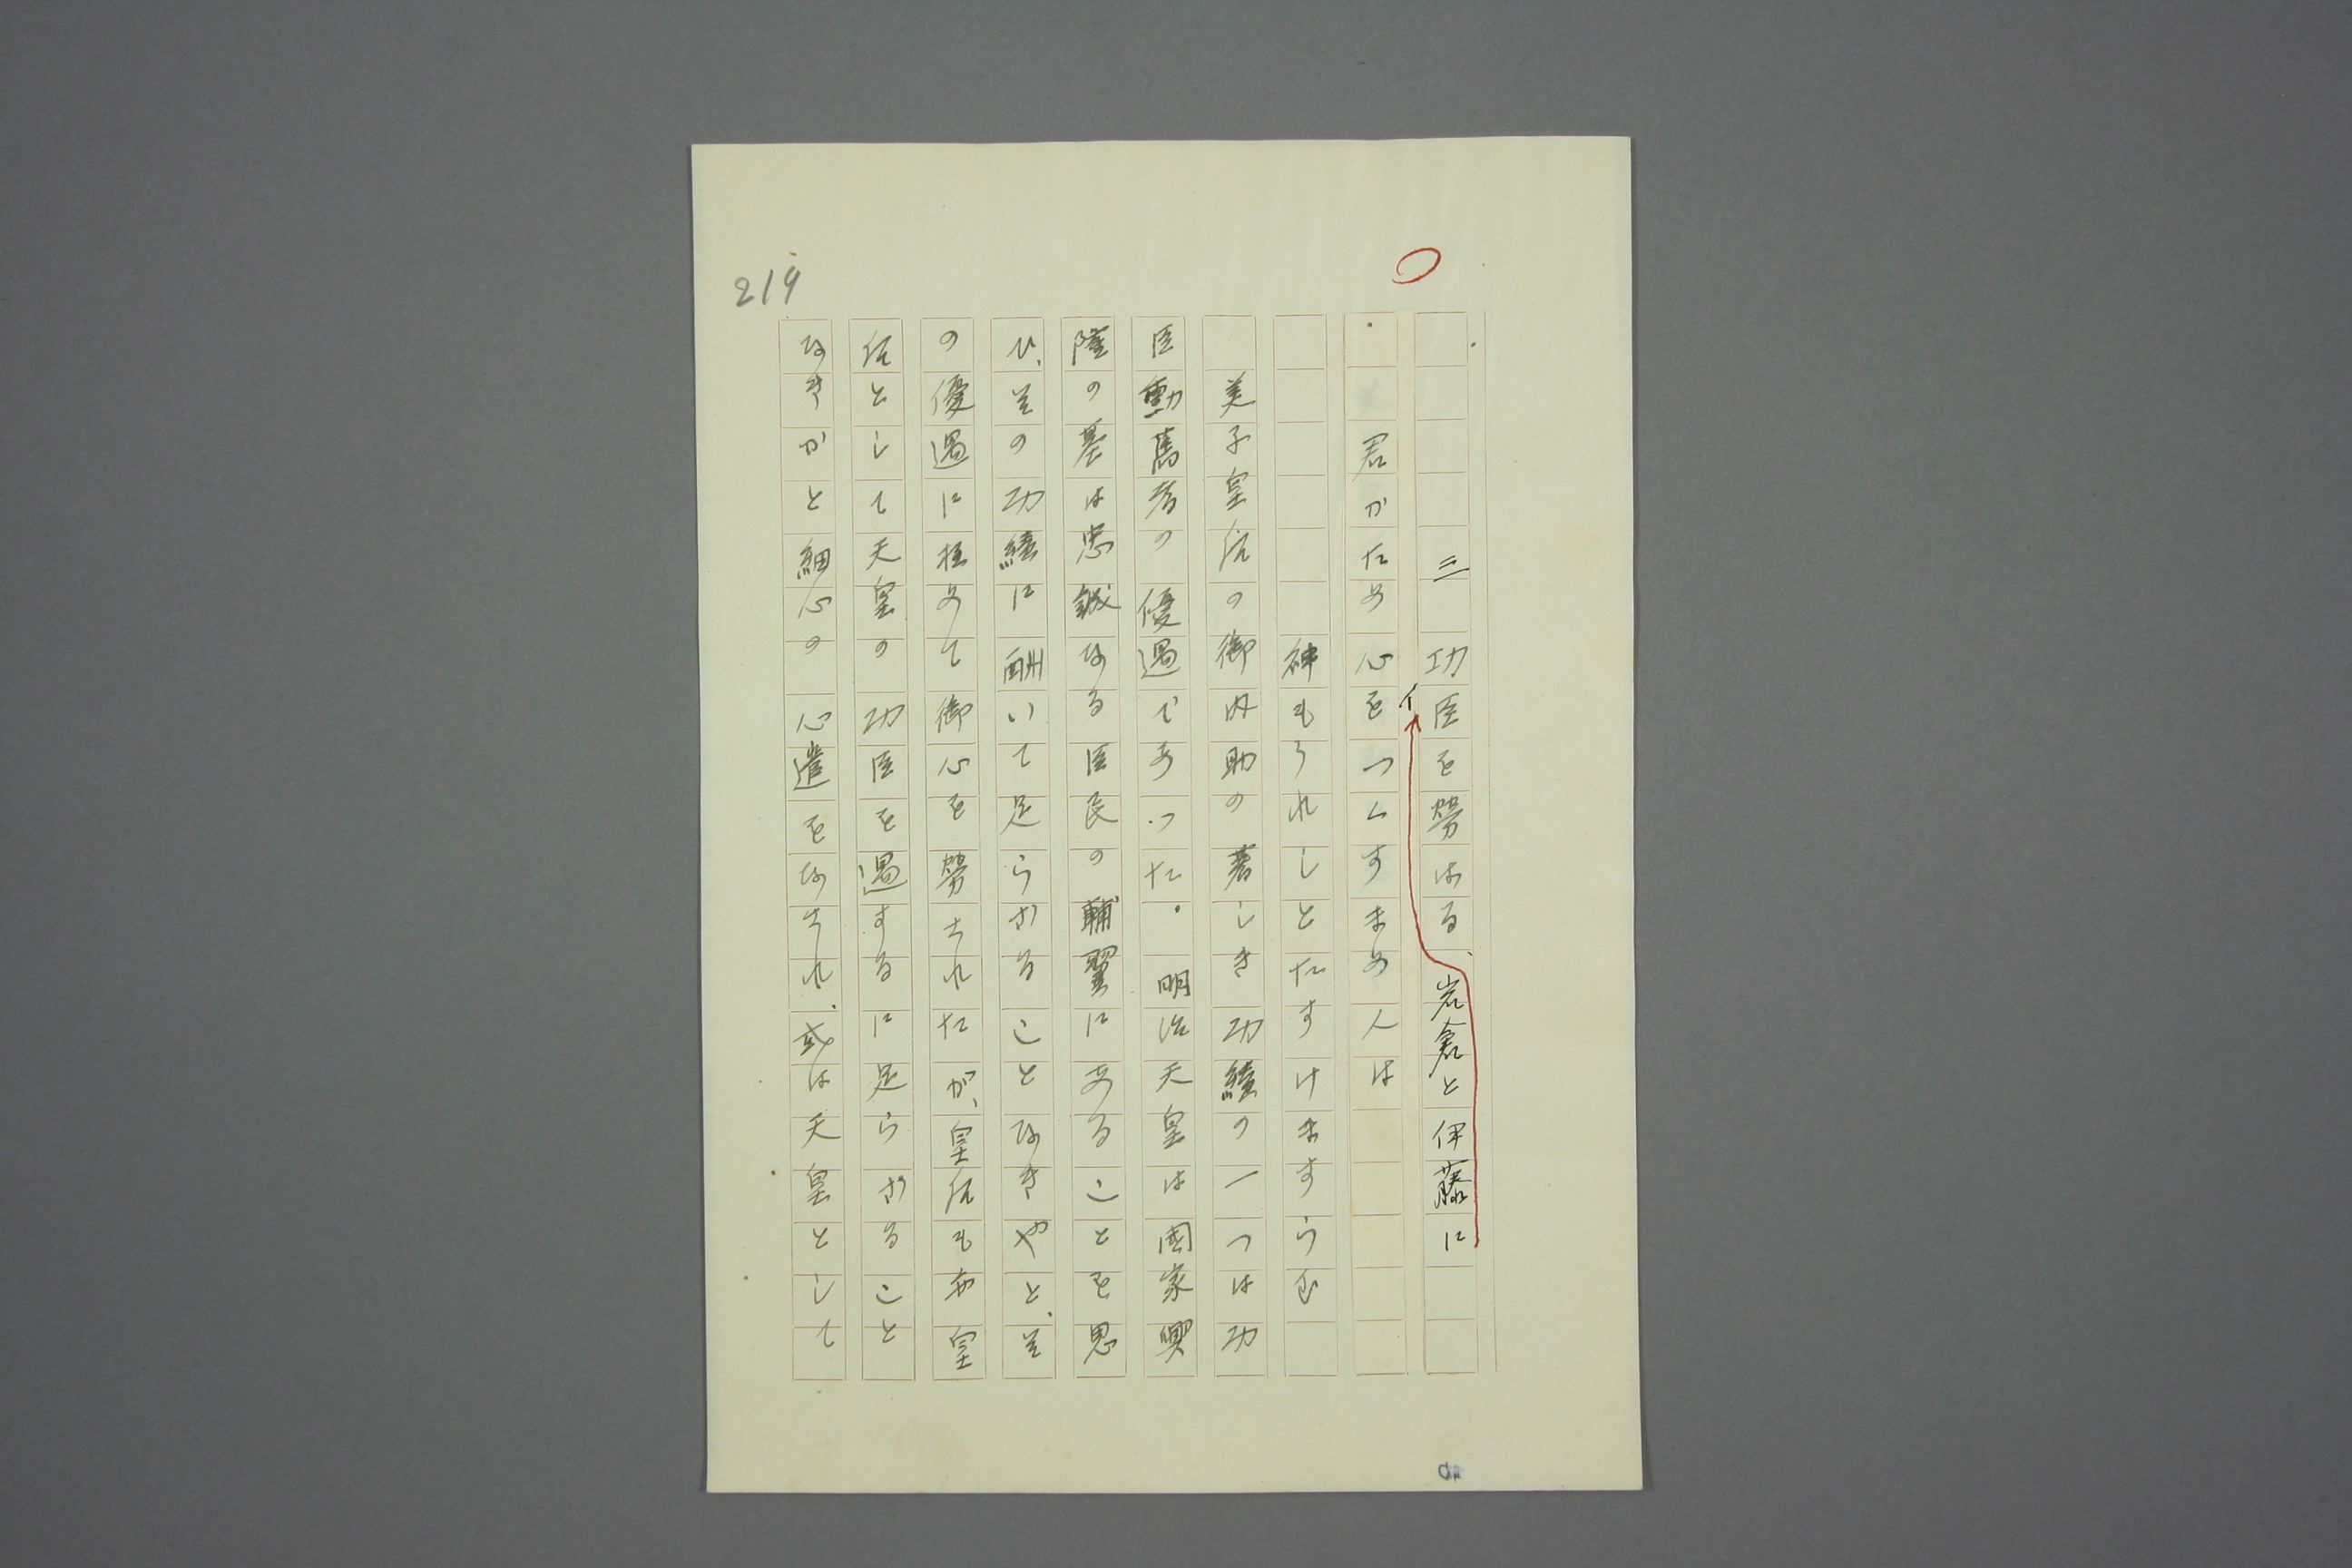 219
三 功臣を勞はる、岩倉と伊藤に
君がため心をつくすまめ人は
神もうれしとたすけますらむ
美子皇后の御内助の著しき功績の一つは功
臣勳舊者の優遇であつた。明治天皇は國家興
隆の基は忠誠なる臣民の輔翼にあることを思
ひ、その功績に酬いて足らざることなきやと、そ
の優遇に極めて御心を勞せられたが、皇后も亦皇
后として天皇の功臣を遇するに足らざること
なきかと細心の心遣をなされ、或は天皇として